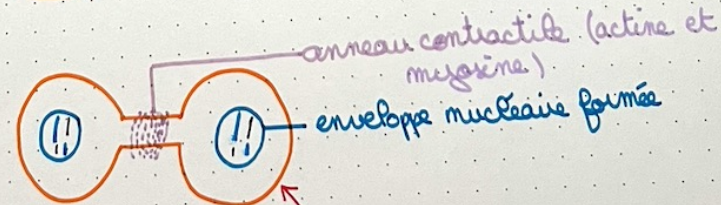 anneau contractile (actine et
myosine)
enveloppe nucléaire formée